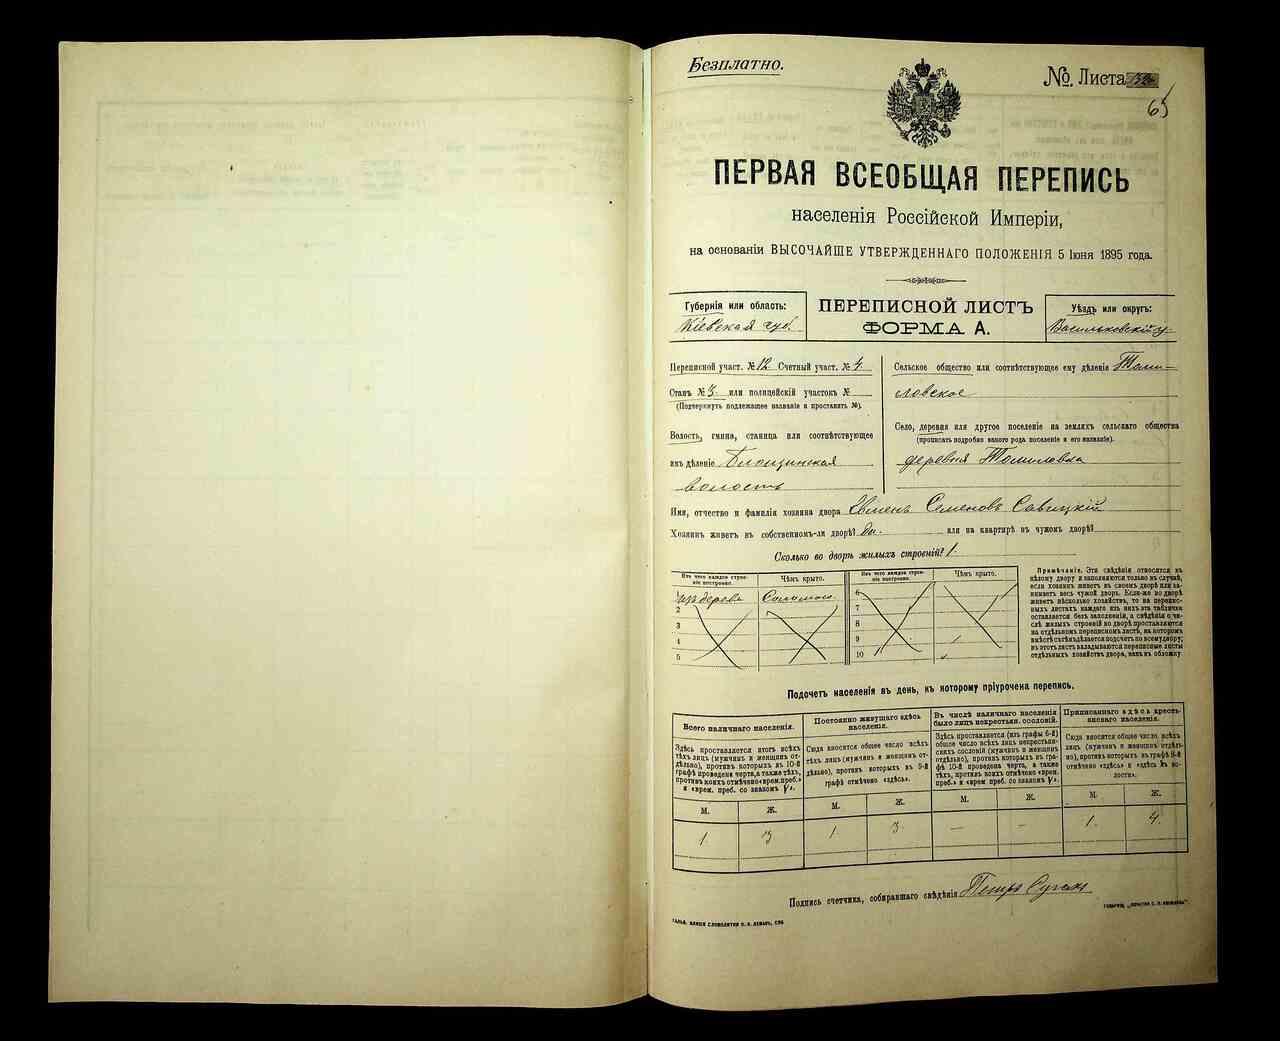 Безплатно.
№ Листа 32
65
ПЕРВАЯ ВСЕОБЩАЯ ПЕРЕПИСЬ
населенія Россійской Имперіи,
на основаніи ВЫСОЧАЙШЕ УТВЕРЖДЕННАГО ПОЛОЖЕНІЯ 5 Іюня 1895 года.
Губернія или область:
Кіевская губ.
ПЕРЕПИСНОЙ ЛИСТЪ
ФОРМА А.
Уѣздъ или округъ:
Васильковскій у.
Переписной участ. № 12 Счетный участ. № 4.
Станъ № 3. или полицейскій участокъ №
(Подчеркнуть подлежащее названіе и проставить №).
Волость, гмина, станица или соотвѣтствующее
имъ дѣленіе Блощинская
волость
Сельское общество или соотвѣтствующее ему дѣленіе Томи-
ловское
Село, деревня или другое поселеніе на земляхъ сельскаго общества
(прописать подробно какого рода поселеніе и его названіе).
деревня Томиловка
Имя, отчество и фамилія хозяина двора Евмень Семеновъ Савицкій
Хозяинъ живетъ въ собственномъ-ли дворѣ? Да. или на квартирѣ въ чужомъ дворѣ?
Сколько во дворѣ жилыхъ строеній? 1.
Изъ чего каждое строеніе построено.
Чѣмъ крыто.
Изъ чего каждое строеніе построено.
Чѣмъ крыто.
1 изъ дерева Соломою 6
2 7
3 8
4 9
5 10
Примѣчаніе. Эти свѣдѣнія относятся къ
цѣлому двору и заполняются только въ случаѣ,
если хозяинъ живетъ въ своемъ дворѣ или за-
нимаетъ весь чужой дворъ. Если-же во дворѣ
живетъ нѣсколько хозяйствъ, то на перепис-
ныхъ листахъ каждаго изъ нихъ эта табличка
оставляется безъ заполненія, а свѣдѣнія о чи-
слѣ жилыхъ строеній во дворѣ проставляются
на отдѣльномъ переписномъ листѣ, на которомъ
вмѣстѣ съ тѣмъ дѣлается подсчетъ по всему двору;
въ этотъ листъ вкладываются переписные листы
отдѣльныхъ хозяйствъ двора, какъ въ обложку.
Подсчетъ населенія въ день, къ которому пріурочена перепись.
Всего наличнаго населенія.
Здѣсь проставляется итогъ всѣхъ
тѣхъ лицъ (мужчинъ и женщинъ от-
дѣльно), противъ которыхъ въ 10-й
графѣ проведена черта, а также тѣхъ,
противъ коихъ отмѣчено «врем. преб.»
и «врем. преб. со знакомъ V».
Постоянно живущаго здѣсь
населенія.
Сюда вносится общее число всѣхъ
тѣхъ лицъ (мужчинъ и женщинъ от-
дѣльно), противъ которыхъ въ 9-й
графѣ отмѣчено «здѣсь».
Въ числѣ наличнаго населенія
было лицъ некрестьян. сословій.
Здѣсь проставляется (изъ графы 6-й)
общее число всѣхъ лицъ некрестьян-
скихъ сословій (мужчинъ и женщинъ
отдѣльно), противъ которыхъ въ гра-
фѣ 10-й проведена черта, а также
тѣхъ, противъ коихъ отмѣчено «врем.
преб.» и «врем преб. со знакомъ V».
Приписаннаго здѣсь кресть-
янскаго населенія.
Сюда вносится общее число всѣхъ
лицъ (мужчинъ и женщинъ отдѣль-
но), противъ которыхъ въ графѣ 8-й
отмѣчено «здѣсь» и «здѣсь въ во-
лости».
М. Ж. М. Ж. М. Ж. М. Ж.
1. 3 1. 3. — — 1. 4.
Подпись счетчика, собиравшаго свѣдѣнія Петръ